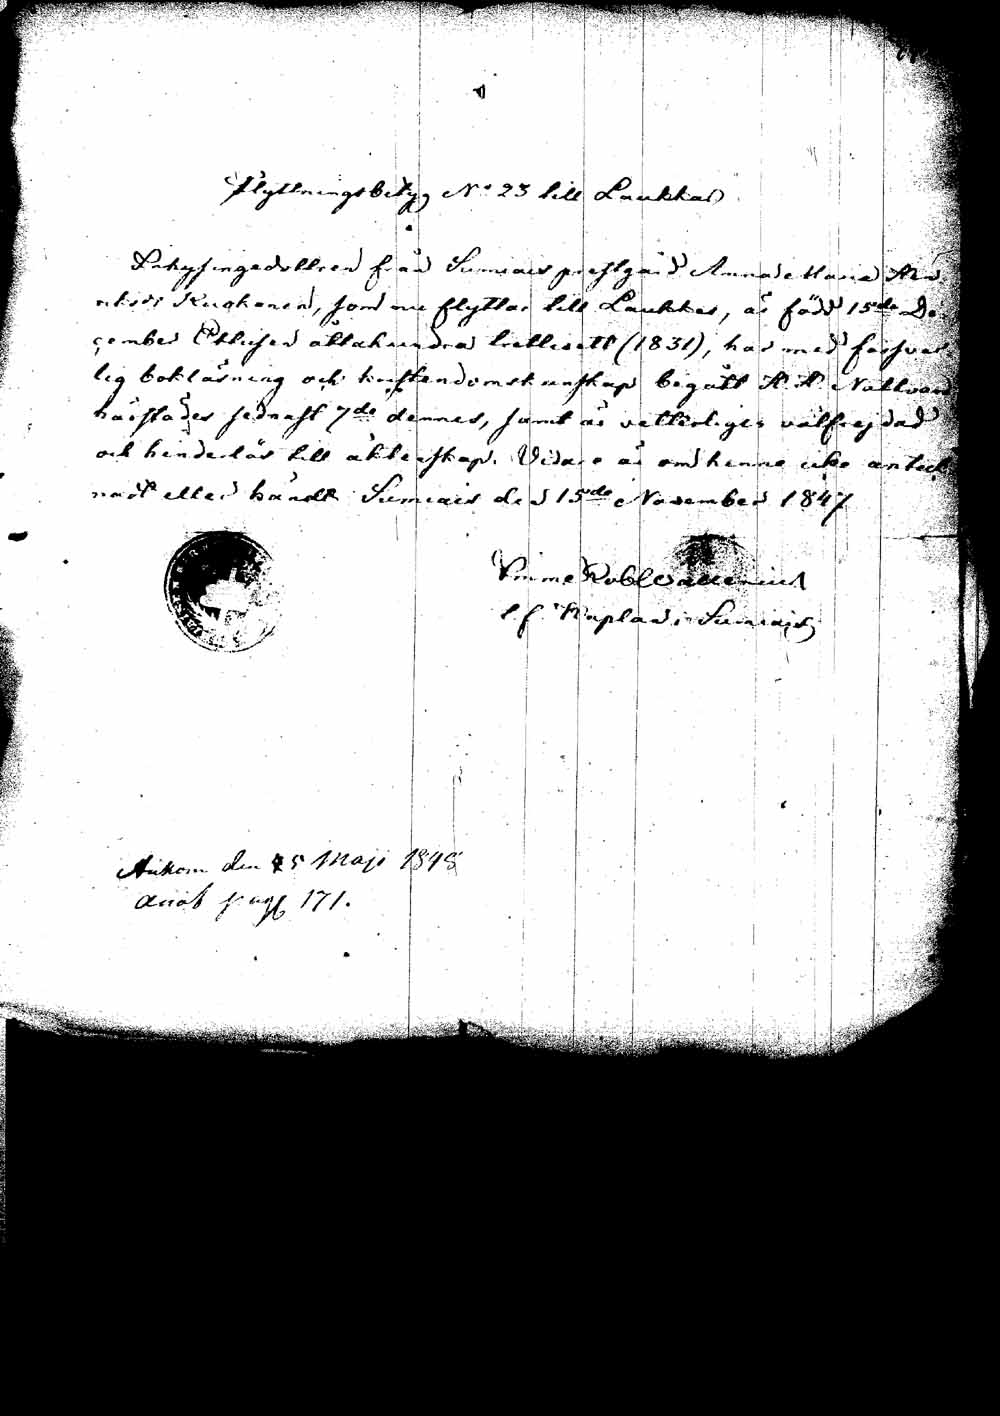 Flyttningsbetyg No 23 till Laukkas
Inhysingedottren från Sumiais prestgård Anna Maria Hen
riksdr Kuokanen, som nu flyttar till Laukkas, är född 15de De
cember Ettusen åttahundra trettioett (1831), har med försvar
lig bokläsning och kristendomskunskap begått H. H. Nattvard
härstädes sednast 7de dennes, samt är vetterligen välfrejdad
och hinderlös till äktenskap. Vidare är om henne icke anteck
nadt eller händt. Sumiais den 15de November 1847
Rob Wallenius
Kaplan i Sumiais
Ankom den 5 Maji 1848
pag 171.